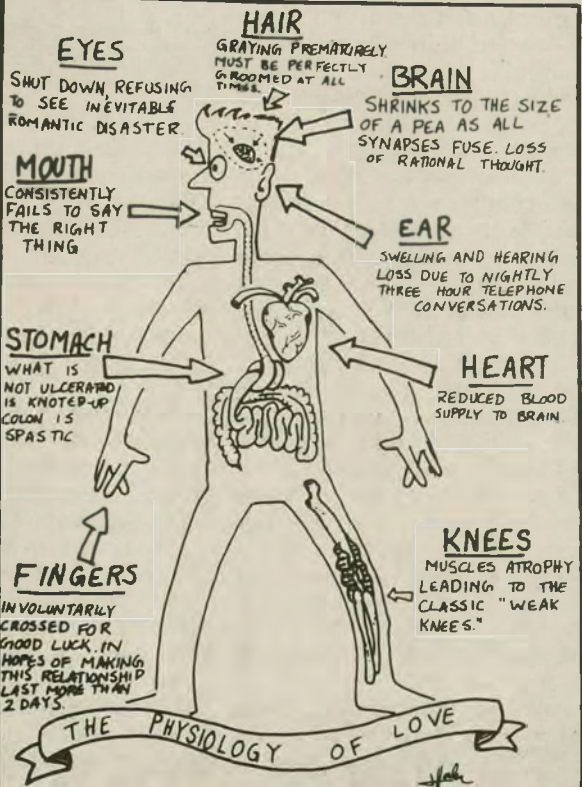 HAIR
GRAYING PREMATURELY.
MUST BE PERFECTLY
GROOMED AT ALL
TIMES.
EYES
SHUT DOWN, REFUSING
TO SEE INEVITABLE
ROMANTIC DISASTER.
BRAIN
SHRINKS TO THE SIZE
OF A PEA AS ALL
SYNAPSES FUSE. LOSS
OF RATIONAL THOUGHT.
MOUTH
CONSISTENTLY
FAILS TO SAY
THE RIGHT
THING
EAR
SWELLING AND HEARING
LOSS DUE TO NIGHTLY
THREE HOUR TELEPHONE
CONVERSATIONS.
STOMACH
WHAT IS
NOT ULCERATED
IS KNOTED-UP
COLON IS
SPASTIC
HEART
REDUCED BLOOD
SUPPLY TO BRAIN.
KNEES
MUSCLES ATROPHY
LEADING TO THE
CLASSIC "WEAK
KNEES."
FINGERS
INVOLUNTARILY
CROSSED FOR
GOOD LUCK, IN
HOPES OF MAKING
THIS RELATIONSHIP
LAST MORE THAN
2 DAYS.
THE PHYSIOLOGY OF LOVE